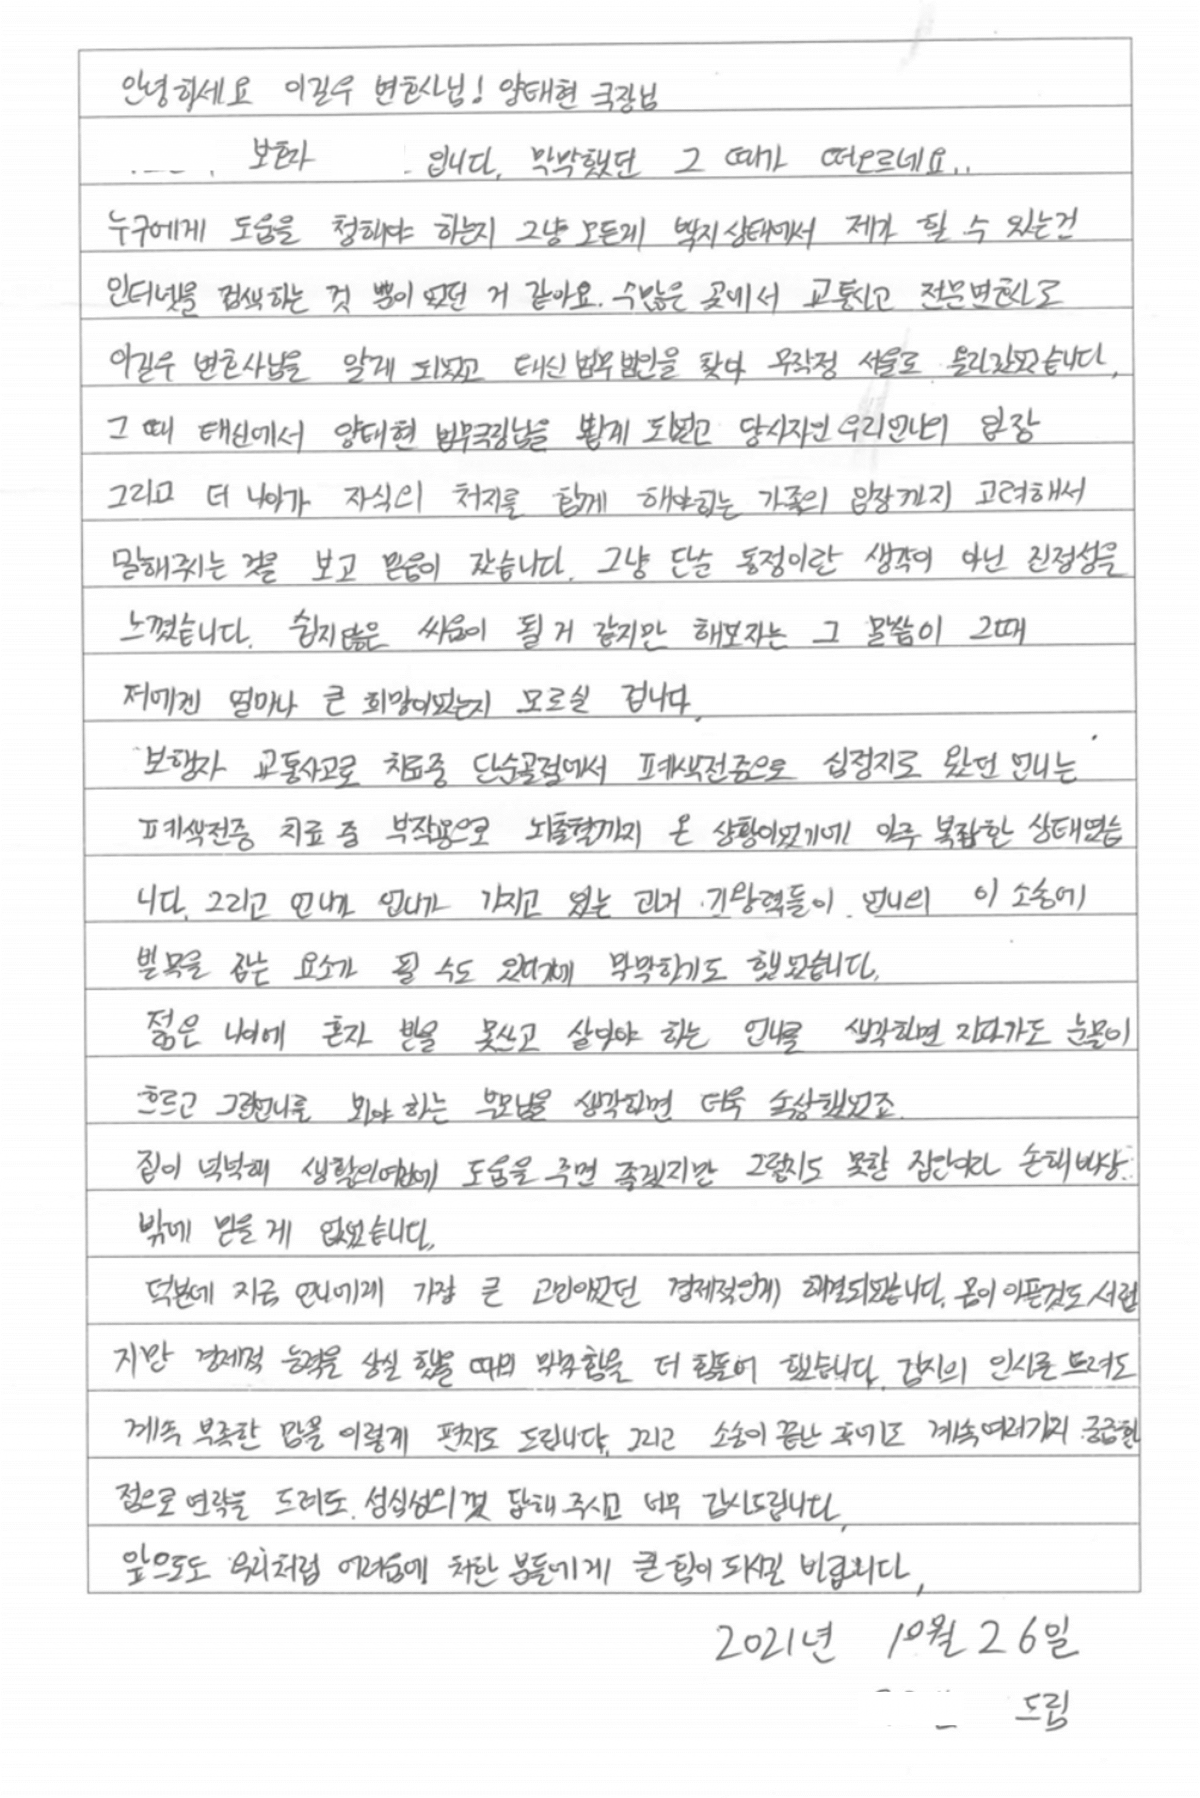 안녕하세요 이길우 변호사님! 양태현 국장님
보호자 입니다. 막막했던 그 때가 떠오르네요..
누구에게 도움을 청해야 하는지 그냥 모든게 백지상태에서 제가 할 수 있는건
인터넷을 검색하는 것 뿐이 없던 거 같아요. 수많은 곳에서 교통사고 전문변호사로
이길우 변호사님을 알게 되었고 태신법무법인을 찾아 무작정 서울로 올라갔었습니다.
그 때 태신에서 양태현 법무국장님을 뵙게 되었고 당사자인 우리언니의 입장
그리고 더 나아가 자식의 처지를 함께 해야하는 가족의 입장까지 고려해서
말해주시는 것을 보고 믿음이 갔습니다. 그냥 단순 동정이란 생각이 아닌 진정성을
느꼈습니다. 쉽지않은 싸움이 될 거 같지만 해보자는 그 말씀이 그때
저에겐 얼마나 큰 희망이었는지 모르실 겁니다.
보행자 교통사고로 치료중 단순골절에서 폐색전증으로 심정지로 왔던 언니는
폐색전증 치료 중 부작용으로 뇌출혈까지 온 상황이었기에 아주 복잡한 상태였습
니다. 그리고 언니가 언니가 가지고 있는 과거 기왕력들이 언니의 이 소송에
발목을 잡는 요소가 될 수도 있다기에 막막하기도 했었습니다.
젊은 나이에 혼자 발을 못쓰고 살아야 하는 언니를 생각하면 자다가도 눈물이
흐르고 그런언니를 봐야 하는 부모님을 생각하면 더욱 속상했었죠.
집이 넉넉해 생활의여유에 도움을 주면 좋겠지만 그렇지도 못한 집안이라 손해배상
밖에 믿을 게 없었습니다.
덕분에 지금 언니에게 가장 큰 고민이었던 경제적인게 해결되었습니다. 몸이 아픈것도 서럽
지만 경제적 능력을 상실 했을 때의 막막함을 더 힘들어 했습니다. 감사의 인사를 드려도
계속 부족한 맘을 이렇게 편지로 드립니다. 그리고 소송이 끝난 후에도 계속 여러가지 궁금한
점으로 연락을 드려도 성심성의껏 답해 주시고 너무 감사드립니다.
앞으로도 우리처럼 어려움에 처한 분들에게 큰 힘이 되시길 바랍니다.
2021년 10월 26일
드림